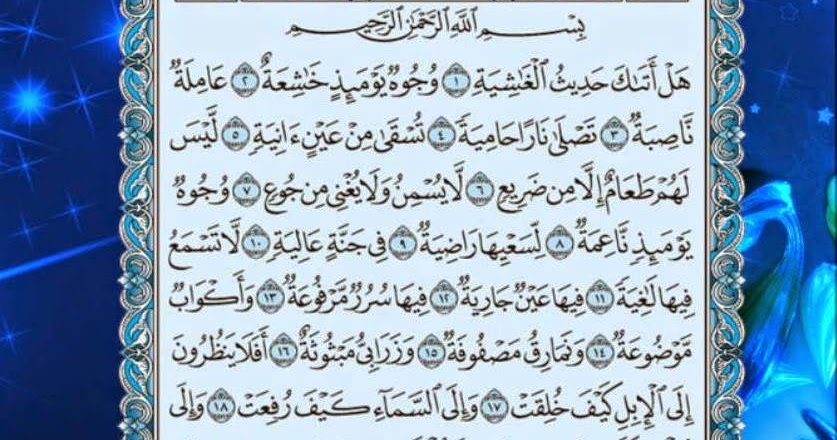 بِسْمِ اللَّهِ الرَّحْمَٰنِ الرَّحِيمِ
هَلْ أَتَىٰكَ حَدِيثُ الْغَٰشِيَةِ ١ وُجُوهٌ يَوْمَئِذٍ خَٰشِعَةٌ ٢ عَامِلَةٌ
نَّاصِبَةٌ ٣ تَصْلَىٰ نَارًا حَامِيَةً ٤ تُسْقَىٰ مِنْ عَيْنٍ ءَانِيَةٍ ٥ لَّيْسَ
لَهُمْ طَعَامٌ إِلَّا مِن ضَرِيعٍ ٦ لَّا يُسْمِنُ وَلَا يُغْنِي مِن جُوعٍ ٧ وُجُوهٌ
يَوْمَئِذٍ نَّاعِمَةٌ ٨ لِّسَعْيِهَا رَاضِيَةٌ ٩ فِي جَنَّةٍ عَالِيَةٍ ١٠ لَّا تَسْمَعُ
فِيهَا لَٰغِيَةً ١١ فِيهَا عَيْنٌ جَارِيَةٌ ١٢ فِيهَا سُرُرٌ مَّرْفُوعَةٌ ١٣ وَأَكْوَابٌ
مَّوْضُوعَةٌ ١٤ وَنَمَارِقُ مَصْفُوفَةٌ ١٥ وَزَرَابِيُّ مَبْثُوثَةٌ ١٦ أَفَلَا يَنظُرُونَ
إِلَى الْإِبِلِ كَيْفَ خُلِقَتْ ١٧ وَإِلَى السَّمَاءِ كَيْفَ رُفِعَتْ ١٨ وَإِلَى